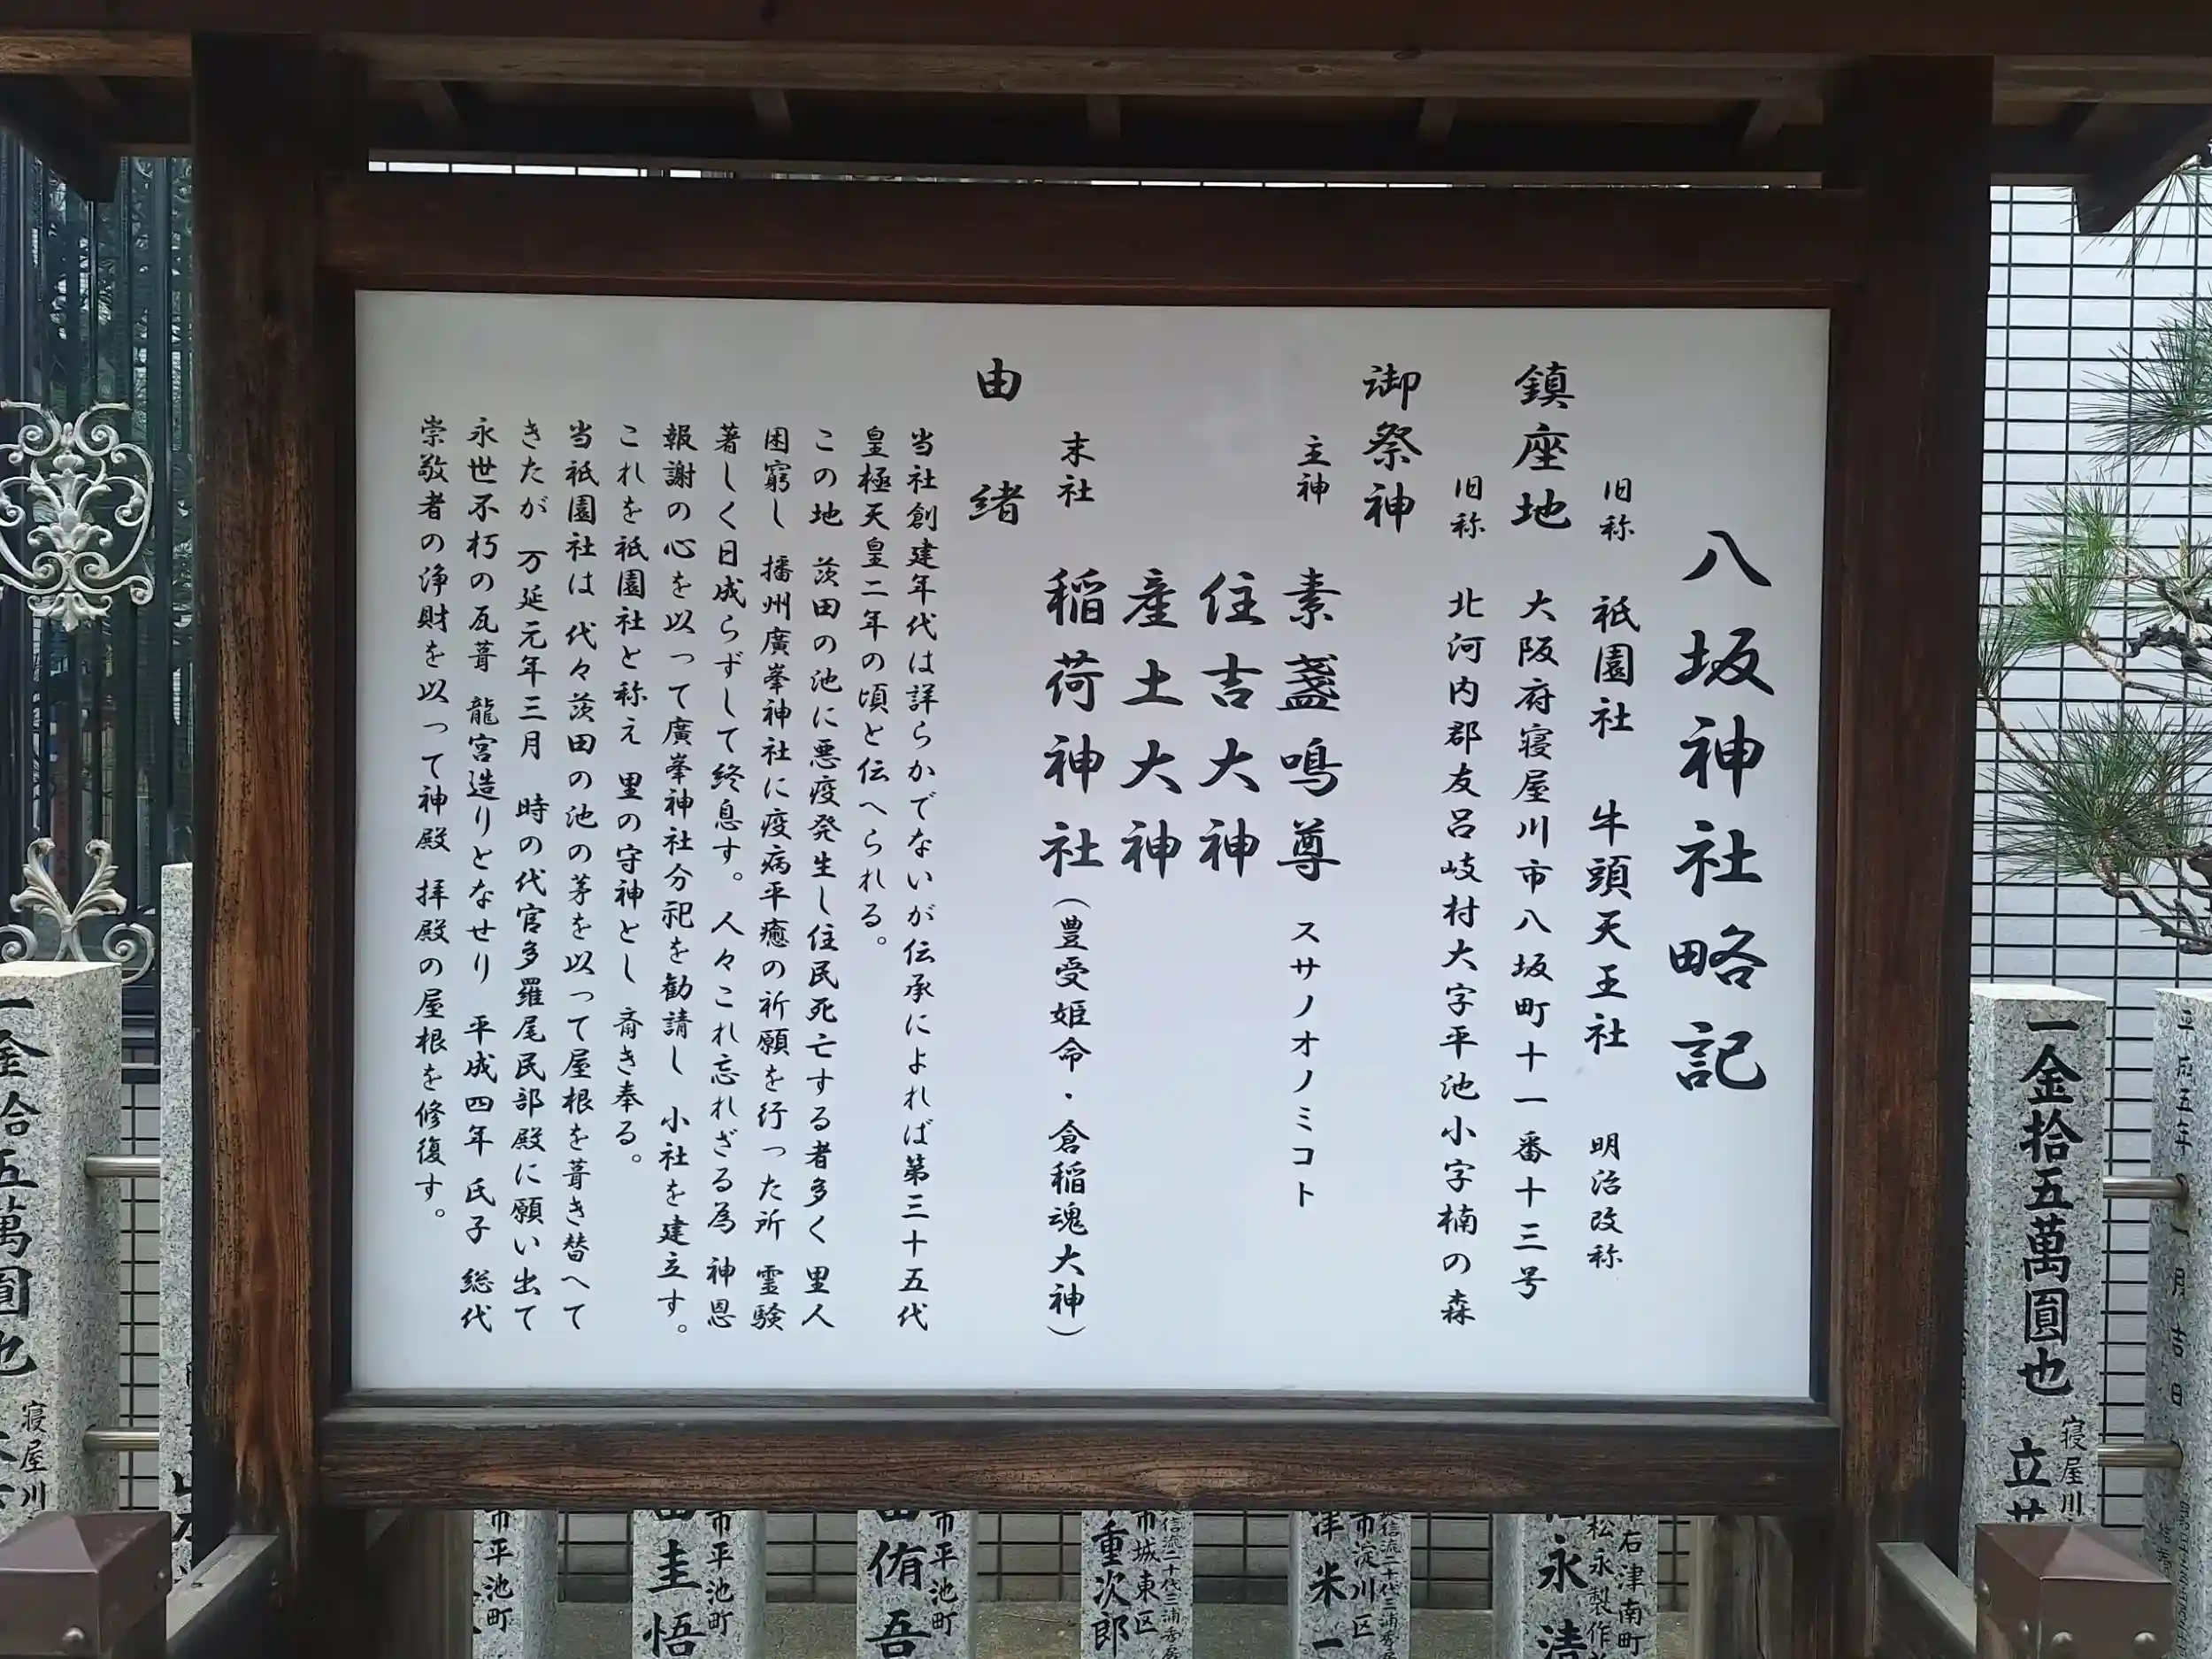 八坂神社略記
旧称 祇園社 牛頭天王社 明治改称
鎮座地 大阪府寝屋川市八坂町十一番十三号
旧称 北河内郡友呂岐村大字平池小字楠の森
御祭神
主神 素盞鳴尊 スサノオノミコト
住吉大神
産土大神
末社 稲荷神社(豊受姫命・倉稲魂大神)
由緒
当社創建年代は詳らかでないが伝承によれば第三十五代
皇極天皇二年の頃と伝へられる。
この地 茨田の池に悪疫発生し住民死亡する者多く 里人
困窮し 播州廣峯神社に疫病平癒の祈願を行った所 霊験
著しく日成らずして終息す。人々これ忘れざる為 神恩
報謝の心を以って廣峯神社分祀を勧請し 小社を建立す。
これを祇園社と称え 里の守神とし 斎き奉る。
当祇園社は代々茨田の池の茅を以って屋根を葺き替へて
きたが 万延元年三月 時の代官多羅尾民部殿に願い出て
永世不朽の瓦葺 龍宮造りとなせり 平成四年 氏子 総代
崇敬者の浄財を以って神殿 拝殿の屋根を修復す。
一金拾五萬圓也
寝屋川
立
月吉日
金拾五萬圓也
寝屋川
石津南町
松永製作
永清
市淀川区
津米一
市城東区
重次郎
市平池町
侑吾
市平池町
圭悟
市平池町